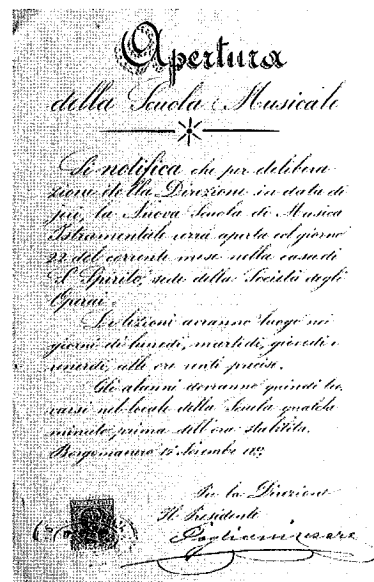 Apertura
della Scuola Musicale
Si notifica che per delibera
zione della Direzione in data di
più, la Nuova Scuola di Musica
Istrumentale verrà aperta col giorno
22 del corrente mese nella casa di
S. Spirito, sede della Società degli
Operai.
Le lezioni avranno luogo nei
giorni di lunedì, martedì, giovedì e
venerdì, alle ore venti precise.
Gli alunni dovranno quindi tro
varsi nel locale della Scuola qualche
minuto prima dell'ora stabilita.
Borgomanero 15
Per la Direzione
Il Presidente